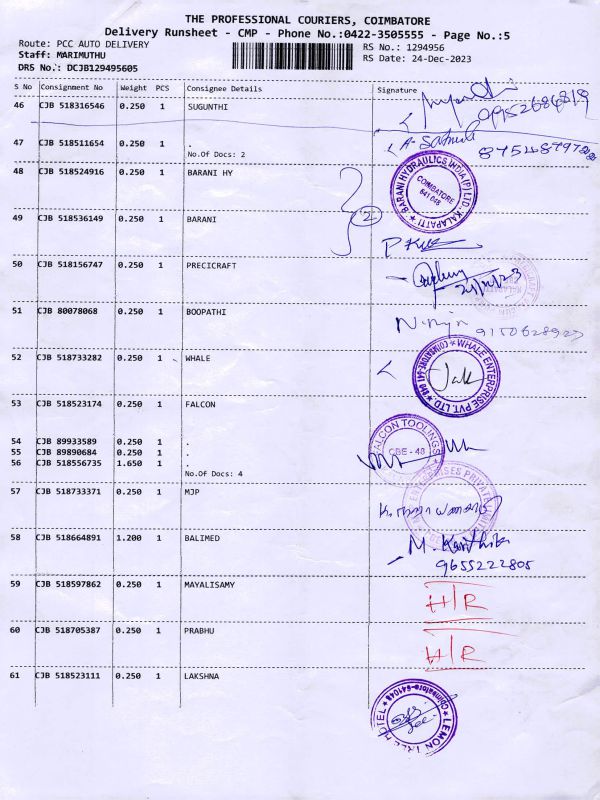 THE PROFESSIONAL COURIERS, COIMBATORE
Delivery Runsheet - CMP - Phone No.:0422-3505555 - Page No.:5
Route: PCC AUTO DELIVERY
RS No.: 1294956
Staff: MARIMUTHU
RS Date: 24-Dec-2023
DRS No.: DCJB129495605
S No Consignment No Weight PCS Consignee Details Signature
46 CJB 518316546 0.250 1 SUGUNTHI
47 CJB 518511654 0.250 1 .
No.Of Docs: 2
48 CJB 518524916 0.250 1 BARANI HY
BARANI HYDRAULICS INDIA (P) LTD. KALAPATTI
COIMBATORE
641 048
2
49 CJB 518536149 0.250 1 BARANI
50 CJB 518156747 0.250 1 PRECICRAFT
51 CJB 80078068 0.250 1 BOOPATHI
52 CJB 518733282 0.250 1 WHALE
WHALE ENTERPRISE PVT. LTD.
53 CJB 518523174 0.250 1 FALCON
54 CJB 89933589 0.250 1 .
55 CJB 89890684 0.250 1 .
56 CJB 518556735 1.650 1 .
No.Of Docs: 4
FALCON TOOLINGS
CBE - 48
57 CJB 518733371 0.250 1 MJP
ENTERPRISES PRIVATE LIMITED
58 CJB 518664891 1.200 1 BALIMED
M. Karthik
9655222805
59 CJB 518597862 0.250 1 MAYALISAMY
H/R
60 CJB 518705387 0.250 1 PRABHU
H/R
61 CJB 518523111 0.250 1 LAKSHNA
LEMON TREE HOTEL
Coimbatore-641048